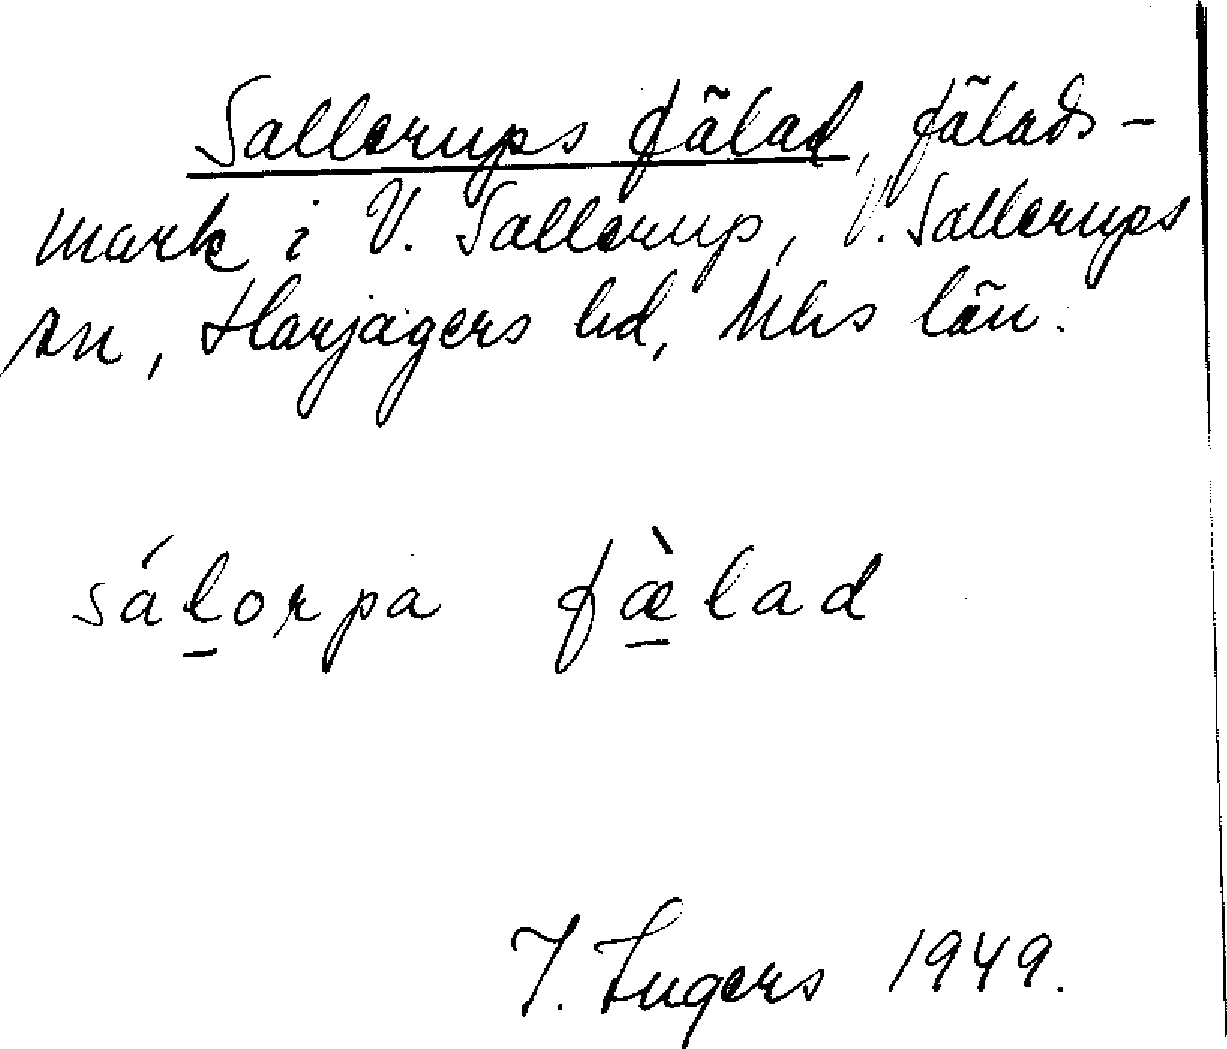 Sallerups fälad, fälads-
mark i V. Sallerup, V. Sallerups
sn, Harjagers hd, Mhs län.
sálorpa fæ̀lad
I. Ingers 1949.